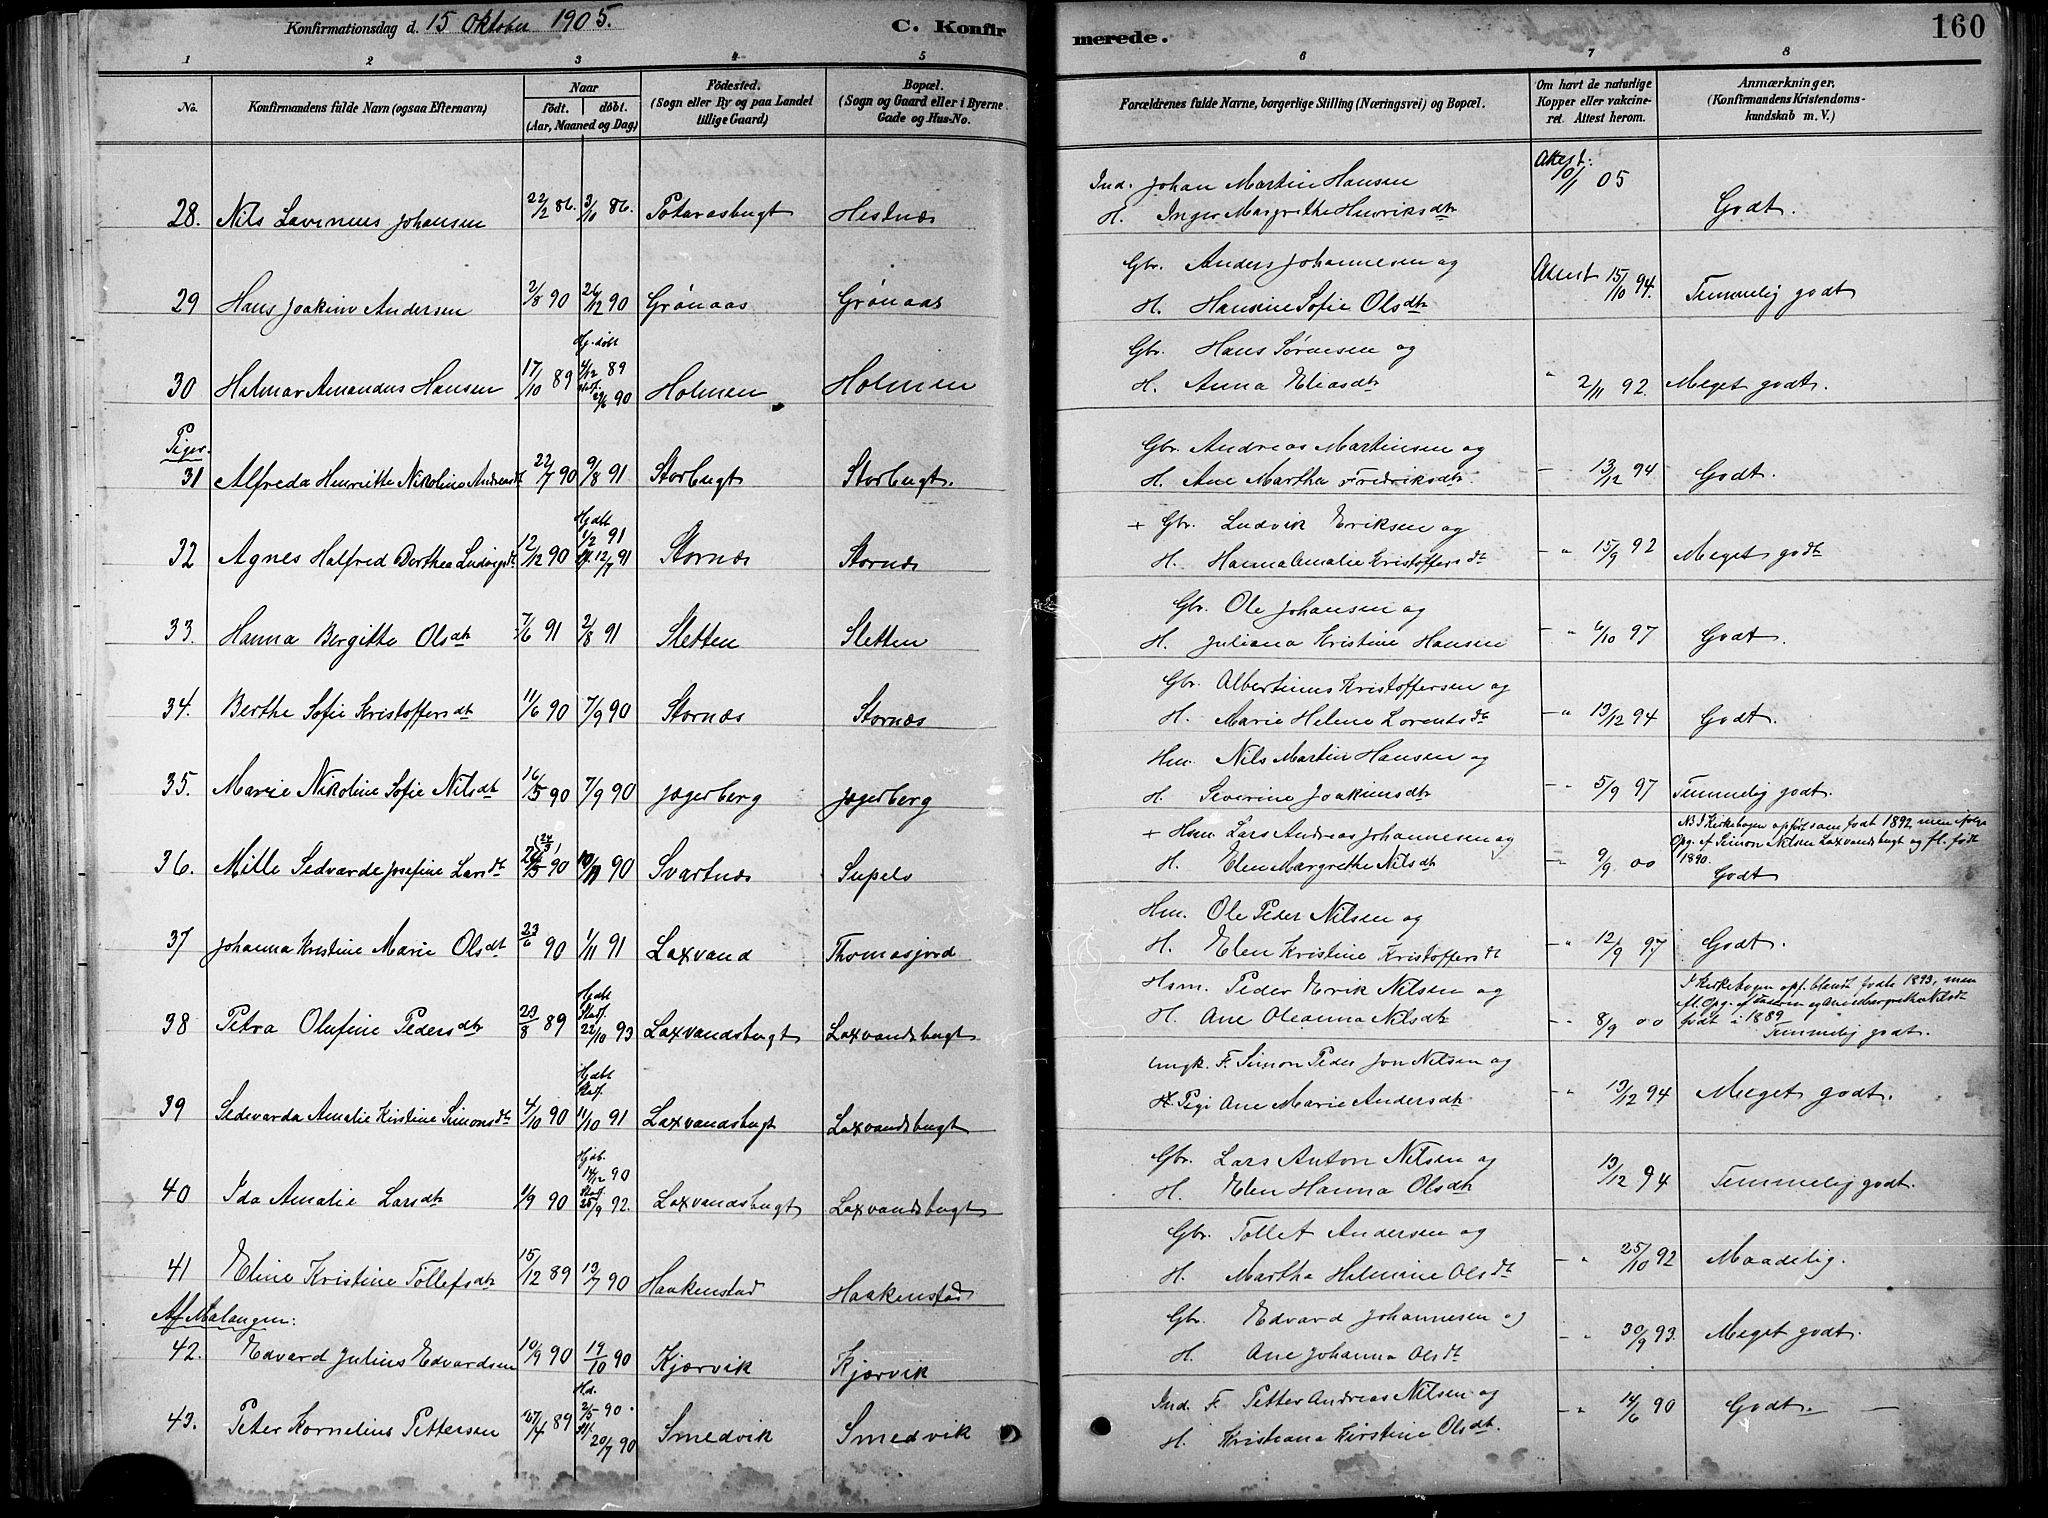 Konfirmationsdag d. 15 Oktober 1905. C. Konfirmerede. 160
1 2 3 4 5 6 7 8
No. Konfirmandens fulde Navn (ogsaa Efternavn) Naar født. døbt. (Aar, Maaned og Dag) Fødested. (Sogn eller By og paa Landet tillige Gaard) Bopæl. (Sogn og Gaard eller i Byerne Gade og Hus-No. Forældrenes fulde Navne, borgerlige Stilling (Næringsvei) og Bopæl. Om havt de naturlige Kopper eller vakcineret. Attest herom. Anmærkninger. (Konfirmandens Kristendomskundskab m. V.)
28. Nils Lavinius Johansen 22/2 86. 3/10 86. Hestnæs Ind. Johan Martin Hansen Attest: 10/1 05
H. Inger Margrethe Henriksdtr Godt.
29 Hans Joakim Andersen 2/8 90 26/12 90 Grønaas Grønaas Gbr. Anders Johannesen og Attest 15/10 94.
H. Hansine Sofie Olsdtr Temmelig godt
30 Halmar Amandus Hansen 17/10 89 Hj. døbt 4/12 89 Stadf. 29/6 90 Holmen Holmen Gbr. Hans Sørensen og
H. Anna Eliasdtr " 2/11 92. Meget godt.
Piger.
31 Alfreda Henriette Nikoline Andreasdt 22/7 90 9/8 91 Storbugt Storbugt. Gbr. Andreas Martinsen og
H. Ane Martha Fredriksdtr. — 13/12 94 Godt.
32 Agnes Halfred Dorthea Ludvigsdt 12/12 90 Hjdbt 1/2 91 St. 12/7 91 Stornæs Stornæs + Gbr. Ludvik Eriksen og
H. Hanna Amalie Kristoffersdt — " 15/9 92 Meget godt
33. Hanna Bergitte Olsdtr 7/6 91 2/8 91 Sletten Sletten Gbr. Ole Johansen og
H. Juliana Kristine Hansen — " 6/10 97 Godt.
34. Berthe Sofie Kristoffersdt 11/6 90 7/9 90 Stornæs Stornæs Gbr. Albertinus Kristoffersen og
H. Marie Helene Lorentsdt — " 13/12 94 Godt.
35. Marie Nikoline Sofie Nilsdt 16/5 90 7/9 90 Jægerberg Jægerberg Hm. Nils Martin Hansen og
H. Severine Joakimsdtr — " 5/9 97 Temmelig godt.
36. Mille Sedvarde Josefine Larsdt 90 90 Svartnæs + Hsm. Lars Andreas Johannesen og NB I Kirkebogen opført som født 1892, men
H. Elen Margrethe Nilsdt — 9/9 00 Opg. af Simon Nilsen Laxvandsbugt og fl. født 1890. Godt
37 Johanna Kristine Marie Olsdt 23/6 90 1/11 91 Laxvand Thomasjord Hm. Ole Peder Nilsen og
H. Elen Kristine Kristoffersdt — " 12/9 97 Godt.
38 Petra Olufine Pedersdtr 23/8 89 Hjdbt Stadf. 22/10 93 Laxvandsbugt Laxvandsbugt Hsm. Peder Erik Nilsen og I Kirkebogen opf. blandt fødte 1893, men
H. Ane Oleanna Nilsdtr — " 8/9 00 født i 1889 Temmelig godt.
39 Sedvarda Amalie Kirstine Simonsdt 4/10 90 Hjdbt Stadf. 11/10 91 Laxvandsbugt Laxvandsbugt Ungk. F. Simon Peder Jon Nilsen og
Pige Ane Marie Andersdtr — " 13/12 94 Meget godt.
40 Ida Amalie Larsdtr 1/9 90 Hjdb. 14/12 90 Stadf. 25/9 92. Laxvandsbugt Laxvandsbugt Gbr. Lars Anton Nilsen og
H. Elen Hanna Olsdtr 13/12 94 Temmelig godt.
41 Eline Kristine Tollefsdtr 15/12 89 13/7 90 Haakenstad Haakenstad Gbr. Tollef Andersen og
H. Martha Halmine Olsdt — " 25/10 92 Maadelig.
Af Malangen:
42. Edvard Julius Edvardsen 10/9 90 19/10 90 Kjærvik Kjærvik Gbr. Edvard Johannesen og
H. Ane Johanna Olsdt — " 30/9 93. Meget godt.
43. Peter Kornelius Pettersen 27/4 89 Hd. 2/5 90. St. 20/7 90 Smedvik Smedvik Ind. F. Petter Andreas Nilsen og
H. Kristiana Kirstine Olsdt. — " 14/6 90 Godt. —